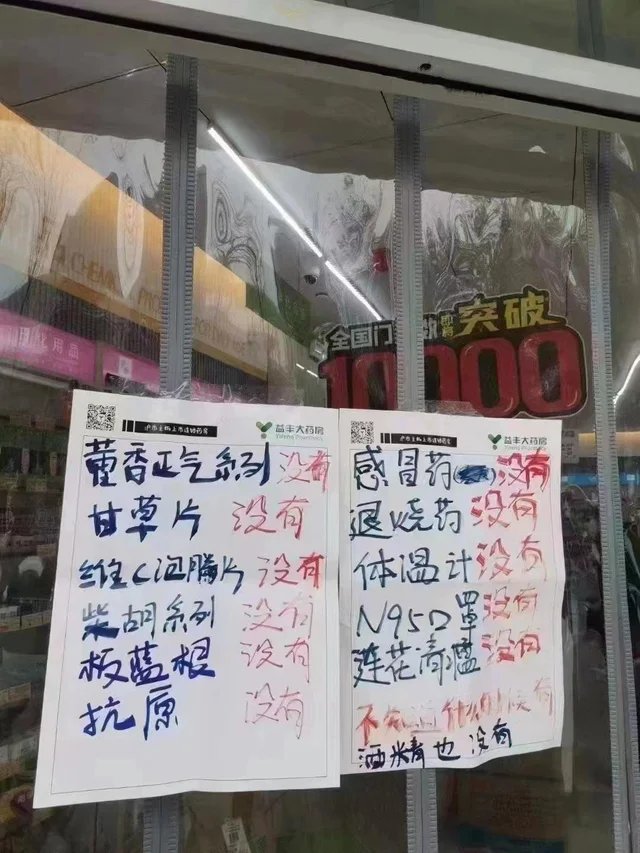 全国门
突破
10000
用品
沪市主板上市连锁药房
益丰大药房
Yifeng Pharmacy
藿香正气系列 没有
甘草片 没有
维C泡腾片 没有
柴胡系列 没有
板蓝根 没有
抗原 没有
沪市主板上市连锁药房
益丰大药房
Yifeng Pharmacy
感冒药 没有
退烧药 没有
体温计 没有
N95口罩 没有
莲花清瘟 没有
不知道什么时候有
酒精也没有